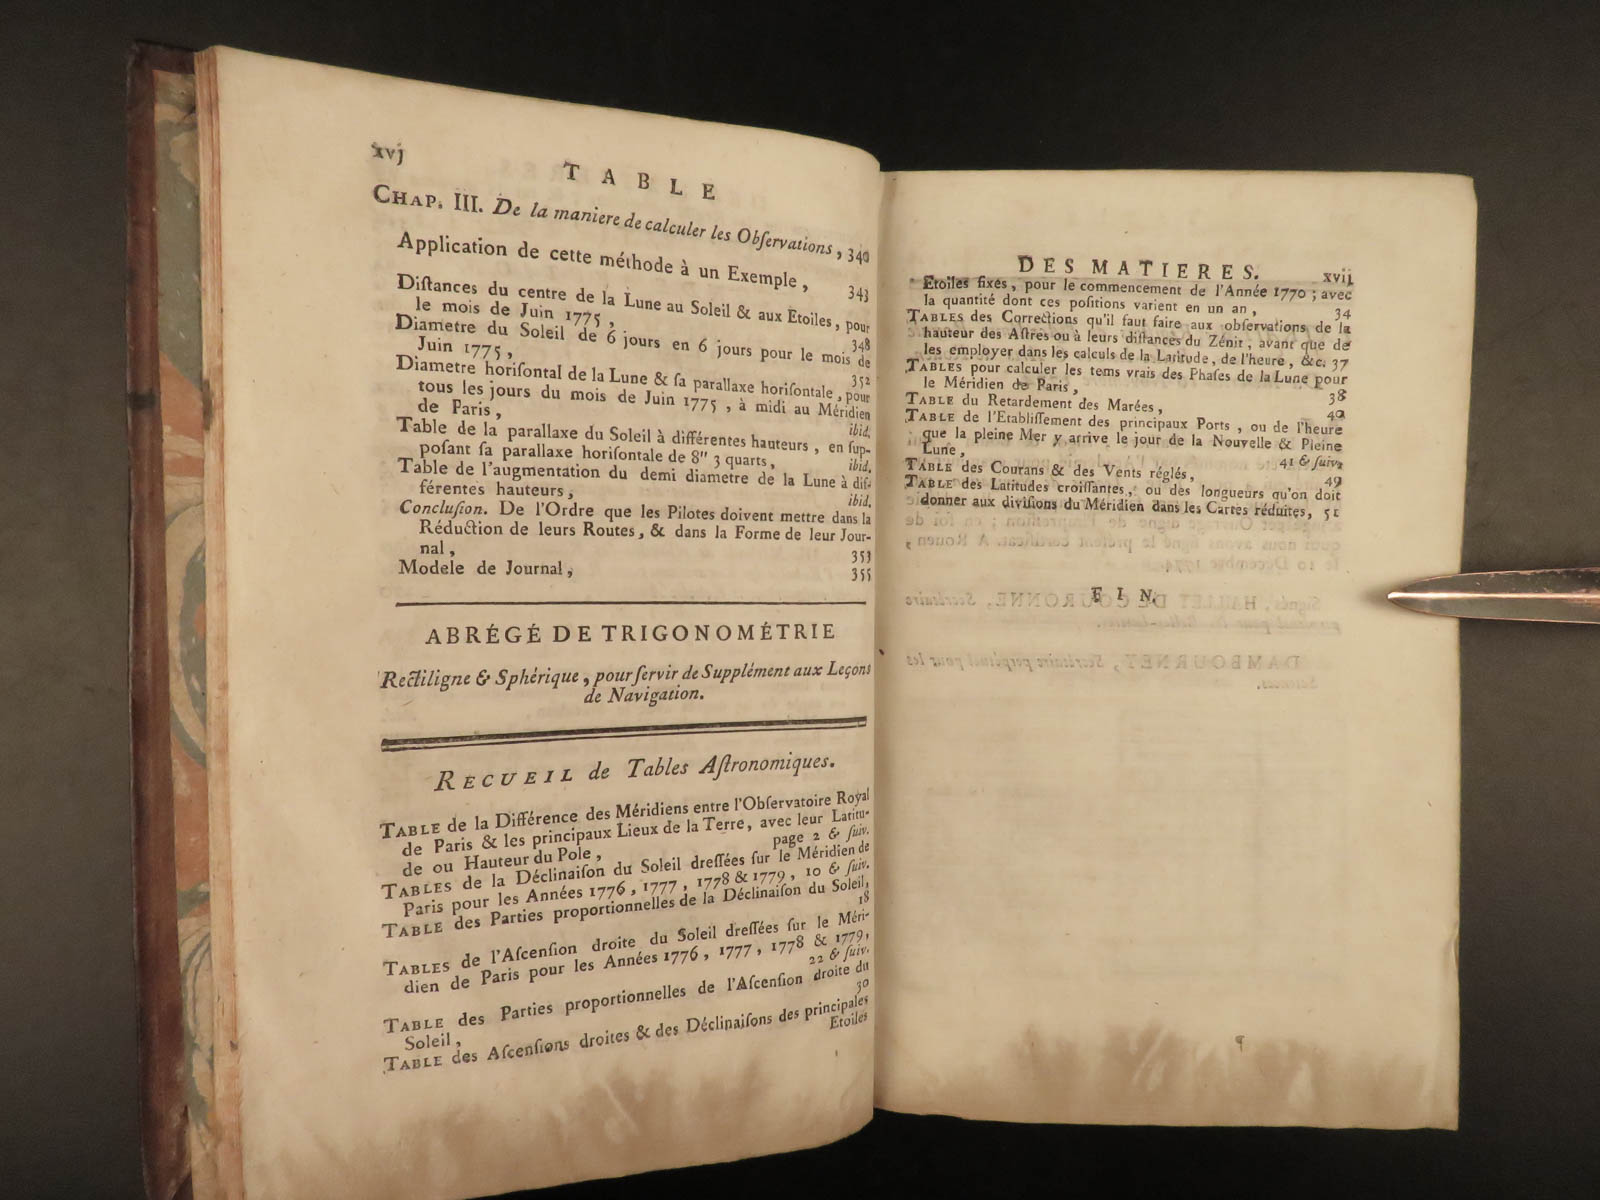 xvj
TABLE
CHAP. III. De la maniere de calculer les Obſervations, 340
Application de cette méthode à un Exemple, 343
Diſtances du centre de la Lune au Soleil & aux Etoiles, pour
le mois de Juin 1775, 348
Diametre du Soleil de 6 jours en 6 jours pour le mois de
Juin 1775, 352
Diametre horiſontal de la Lune & ſa parallaxe horiſontale, pour
tous les jours du mois de Juin 1775, à midi au Méridien
de Paris, ibid.
Table de la parallaxe du Soleil à différentes hauteurs, en ſup-
poſant ſa parallaxe horiſontale de 8" 3 quarts, ibid.
Table de l'augmentation du demi diametre de la Lune à dif-
férentes hauteurs, ibid.
Concluſion. De l'Ordre que les Pilotes doivent mettre dans la
Réduction de leurs Routes, & dans la Forme de leur Jour-
nal, 353
Modele de Journal, 355
ABRÉGÉ DE TRIGONOMÉTRIE
Rectiligne & Sphérique, pour ſervir de Supplément aux Leçons
de Navigation.
RECUEIL de Tables Aſtronomiques.
TABLE de la Différence des Méridiens entre l'Obſervatoire Royal
de Paris & les principaux Lieux de la Terre, avec leur Latitu-
de ou Hauteur du Pole, page 2 & ſuiv.
TABLES de la Déclinaiſon du Soleil dreſſées ſur le Méridien de
Paris pour les Années 1776, 1777, 1778 & 1779, 10 & ſuiv.
TABLE des Parties proportionnelles de la Déclinaiſon du Soleil,
18
TABLES de l'Aſcenſion droite du Soleil dreſſées ſur le Méri-
dien de Paris pour les Années 1776, 1777, 1778 & 1779,
22 & ſuiv.
TABLE des Parties proportionnelles de l'Aſcenſion droite du
Soleil, 30
TABLE des Aſcenſions droites & des Déclinaiſons des principales
Etoiles
DES MATIERES. xvij
Etoiles fixes, pour le commencement de l'Année 1770; avec
la quantité dont ces poſitions varient en un an, 34
TABLES des Corrections qu'il faut faire aux obſervations de la
hauteur des Aſtres ou à leurs diſtances du Zénit, avant que de
les employer dans les calculs de la Latitude, de l'heure, &c. 37
TABLES pour calculer les tems vrais des Phaſes de la Lune pour
le Méridien de Paris, 38
TABLE du Retardement des Marées, 40
TABLE de l'Etabliſſement des principaux Ports, ou de l'heure
que la pleine Mer y arrive le jour de la Nouvelle & Pleine
Lune, 41 & ſuiv.
TABLE des Courans & des Vents réglés, 49
TABLE des Latitudes croiſſantes, ou des longueurs qu'on doit
donner aux diviſions du Méridien dans les Cartes réduites, 51
FIN.